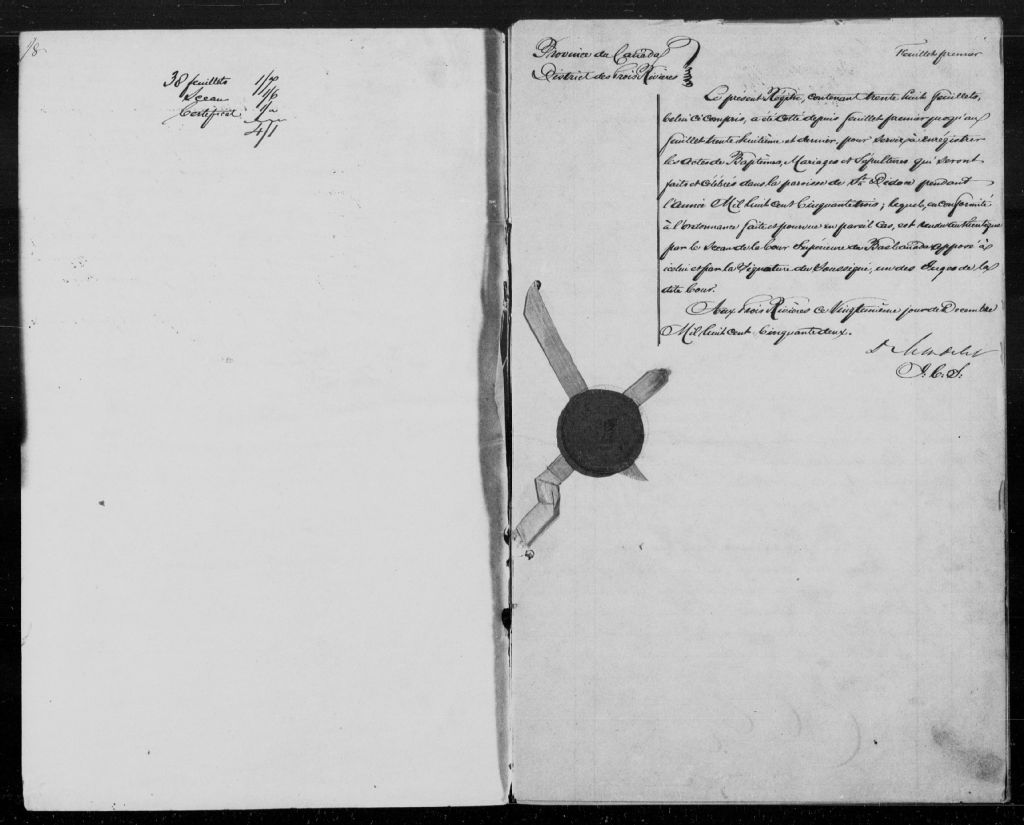 38 feuillets 1/7
Sceau 1/6
Certificat 1/"
4/1
Province du Canada
District des Trois Rivières
Feuillet premier
Ce présent Régître, contenant trente huit feuillets,
celui ci compris, a été côté depuis feuillet premier jusqu'au
feuillet trente huitième et dernier, pour servir à enrégistrer
les actes de Baptêmes, Mariages et Sépultures qui seront
faits et célébrés dans la paroisse de St. Didace pendant
l'année Mil huit cent Cinquante trois; lequel, en conformité
à l'ordonnance faite et pourvue en pareil cas, est rendu authentique
par le Sceau de la Cour Supérieure du Bas Canada apposé à
icelui et par la Signature du Soussigné, un des Juges de la
dite Cour.
Aux Trois Rivières ce Vingtunième jour de Decembre
Mil huit cent Cinquante deux.
J. C. S.